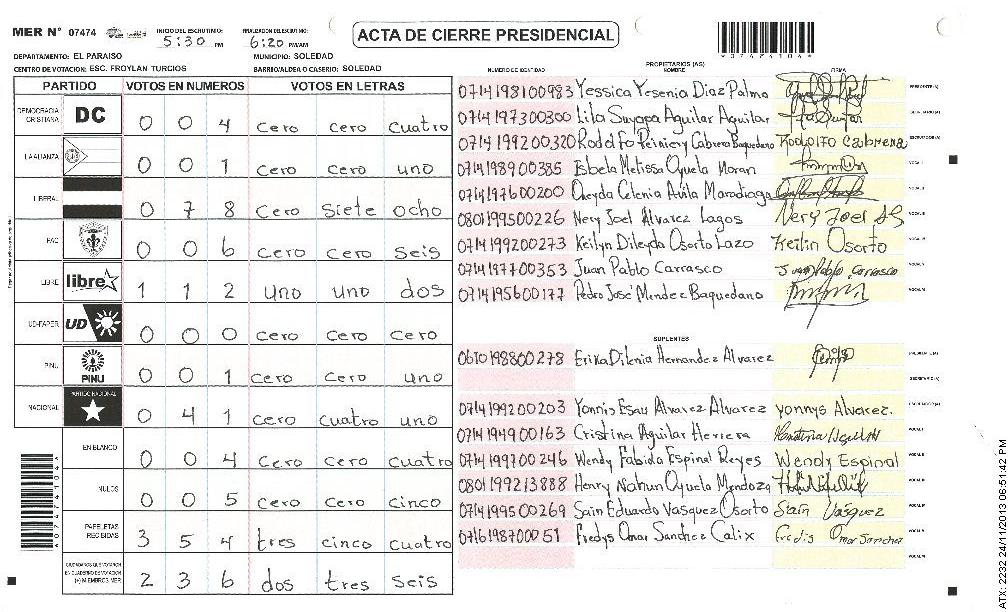 MER Nº 07474 INICIO DEL ESCRUTINIO: 5:30 PM FINALIZACION DEL ESCRUTINIO: 6:20 PM/AM ACTA DE CIERRE PRESIDENCIAL
DEPARTAMENTO: EL PARAISO MUNICIPIO: SOLEDAD
CENTRO DE VOTACION: ESC. FROYLAN TURCIOS BARRIO/ALDEA O CASERIO: SOLEDAD
PARTIDO VOTOS EN NUMEROS VOTOS EN LETRAS
DEMOCRACIA CRISTIANA DC 0 0 4 cero cero cuatro
LA ALIANZA 0 0 1 cero cero uno
LIBERAL 0 7 8 cero siete ocho
PAC 0 0 6 cero cero seis
LIBRE libre 1 1 2 uno uno dos
UD-FAPER UD 0 0 0 cero cero cero
PINU PINU 0 0 1 cero cero uno
NACIONAL PARTIDO NACIONAL 0 4 1 cero cuatro uno
EN BLANCO 0 0 4 cero cero cuatro
NULOS 0 0 5 cero cero cinco
PAPELETAS RECIBIDAS 3 5 4 tres cinco cuatro
CIUDADANOS QUE VOTARON EN CUADERNO DE VOTACION (+) MIEMBROS MER 2 3 6 dos tres seis
PROPIETARIOS (AS)
NUMERO DE IDENTIDAD NOMBRE FIRMA
0714198100983 Yessica Yesenia Diaz Palma PRESIDENTE (A)
0714197300300 Lila Suyapa Aguilar Aguilar SECRETARIO (A)
0714199200320 Rodolfo Reiniery Cabrera Baquedano Rodolfo Cabrera ESCRUTADOR (A)
0714198900385 Isbela Melissa Oyuela Moran
0714197600200 Cheyda Celenia Avila Maradiaga
0801199500226 Nery Joel Alvarez Lagos Nery Joel
0714199200273 Keilyn Dileyda Osorto Lazo Keilin Osorto
0714197700353 Juan Pablo Carrasco Juan Pablo Carrasco
0714195600177 Pedro José Mendez Baquedano
SUPLENTES
0610198800278 Erika Dilenia Hernandez Alvarez PRESIDENTE (A)
SECRETARIO (A)
0714199200203 Yonnis Esau Alvarez Alvarez yonnys Alvarez. ESCRUTADOR (A)
0714194900163 Cristina Aguilar Herrera
0714199700246 Wendy Fabido Espinal Reyes Wendy Espinal
0801199213888 Henry Nahun Oyuela Mendoza
0714199500269 Sain Eduardo Vasquez Osorto Sain Vasquez
0716198700051 Fredys Omar Sanchez Calix Fredis Omar Sanchez
ATX: 2232 24/11/2013 06:51:42 PM